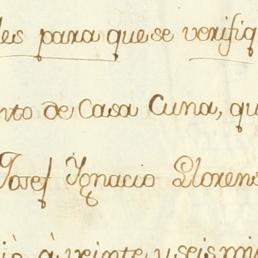 les para que se verifiq
nto de Casa Cuna, qu
Josef Ygnacio Llorens
à veinte y seis mi